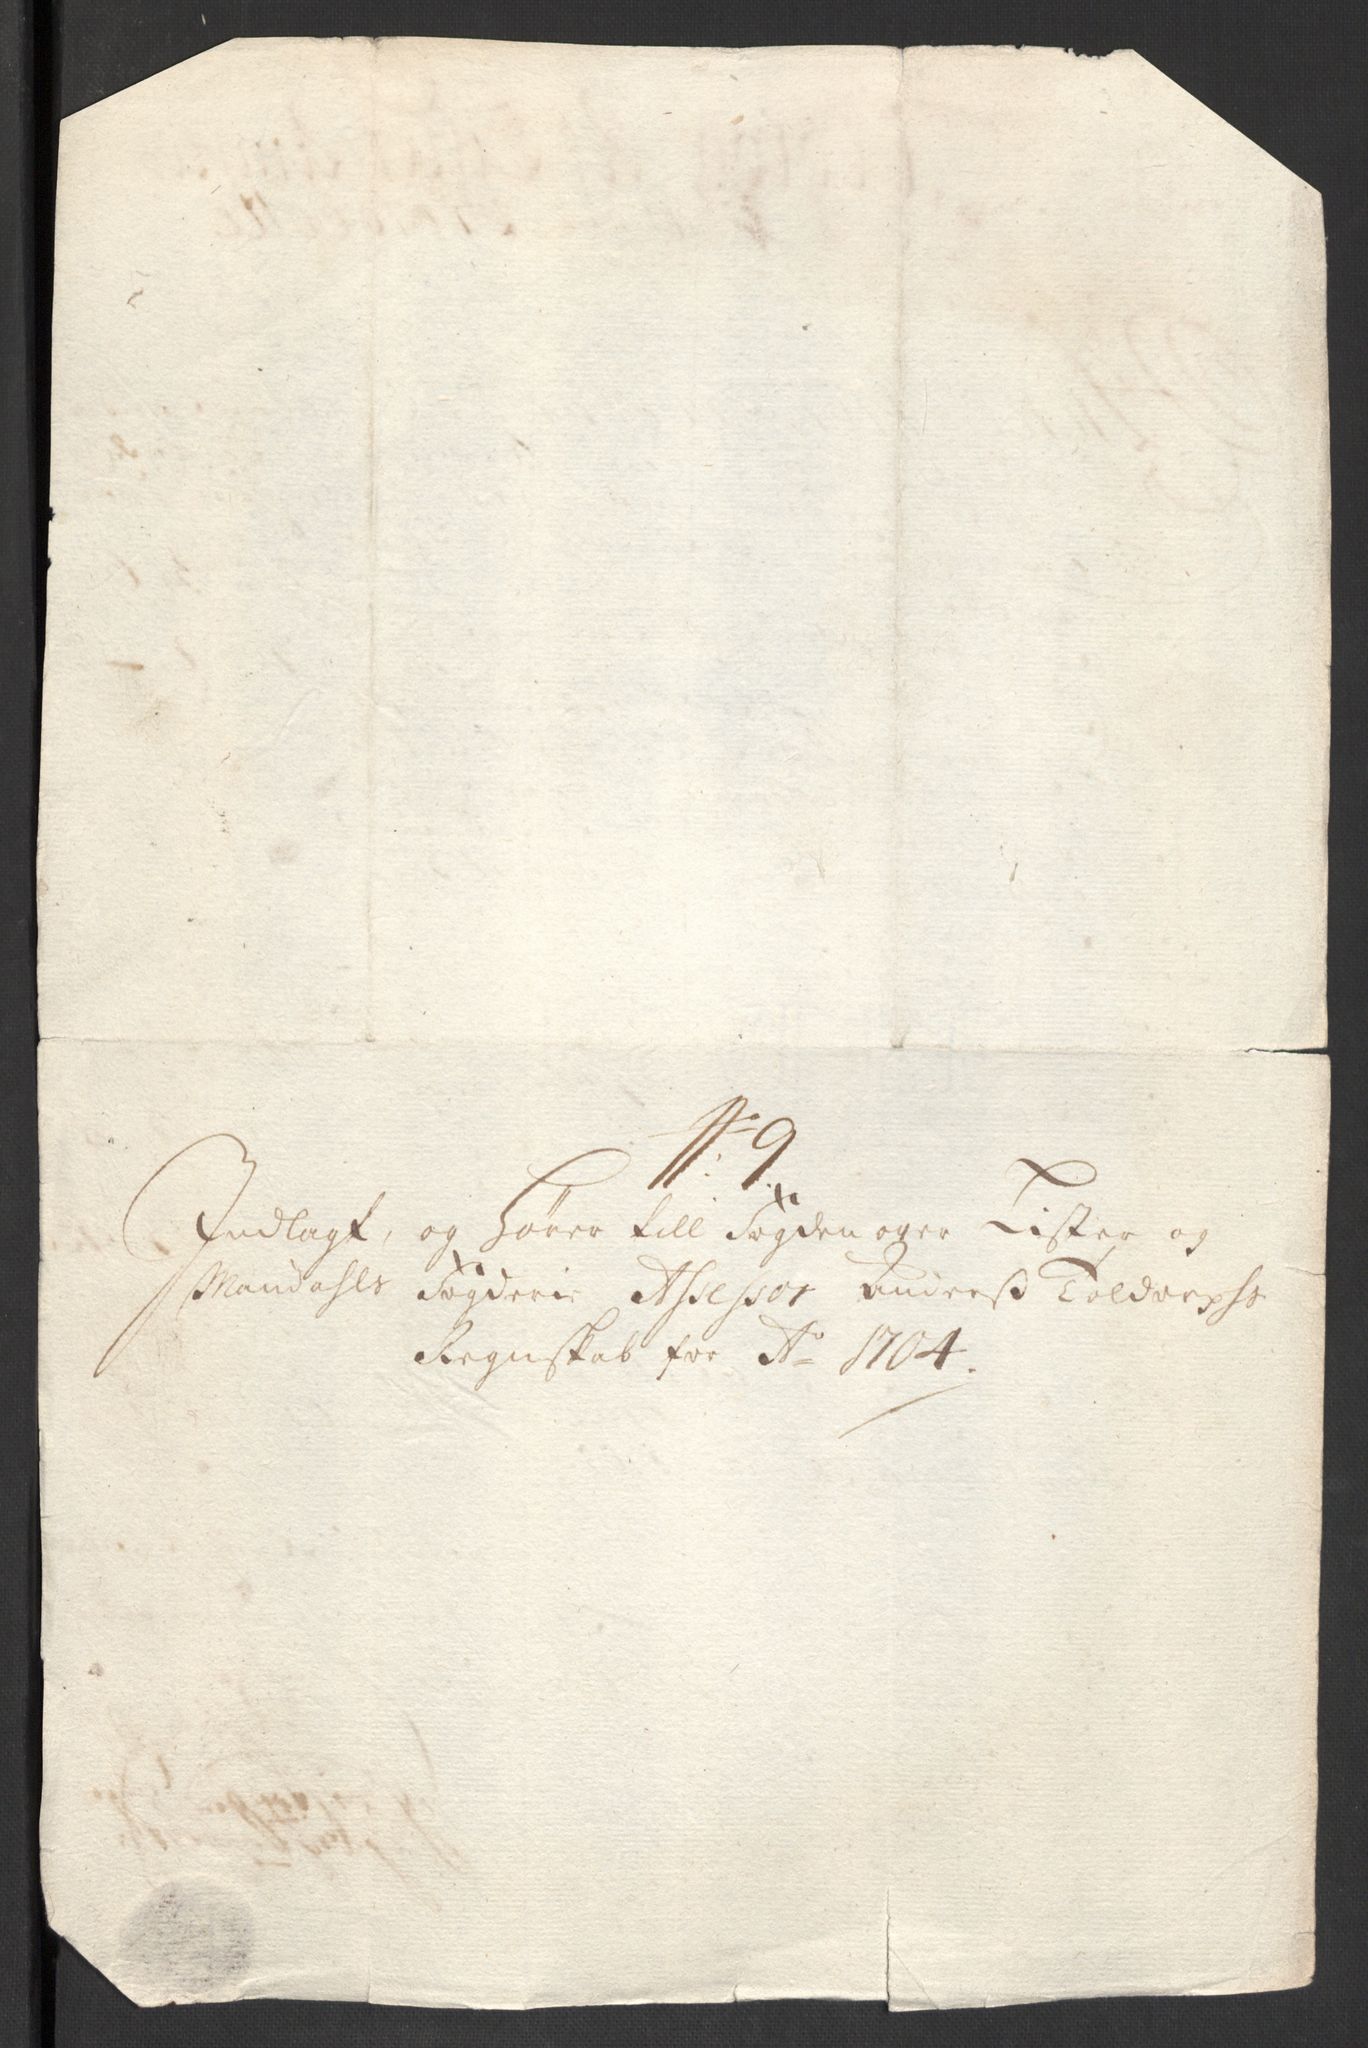 No: 9.
Indlagt, og hörer till Fogden over Lister og
Mandahls Fogderie Assessor Anderss Toldorphs
Regnskab for Ao 1704.